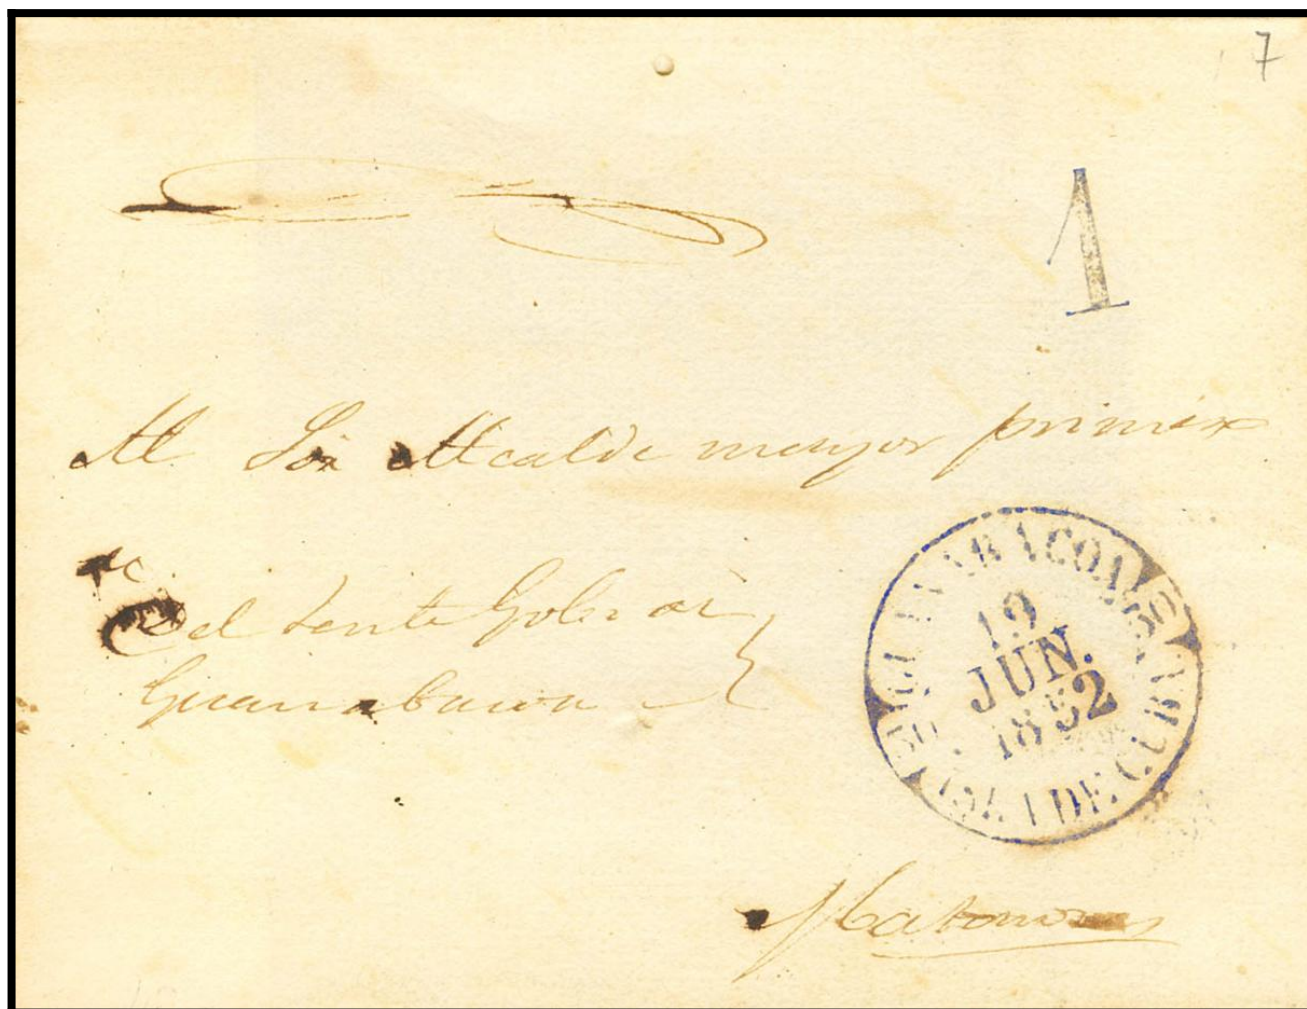 7
1
Al Sor Alcalde mayor primero
Del Tente Gobor de
Guanabacoa
GUANABACOA
12
JUN.
1852
ISLA DE CUBA
Matanzas